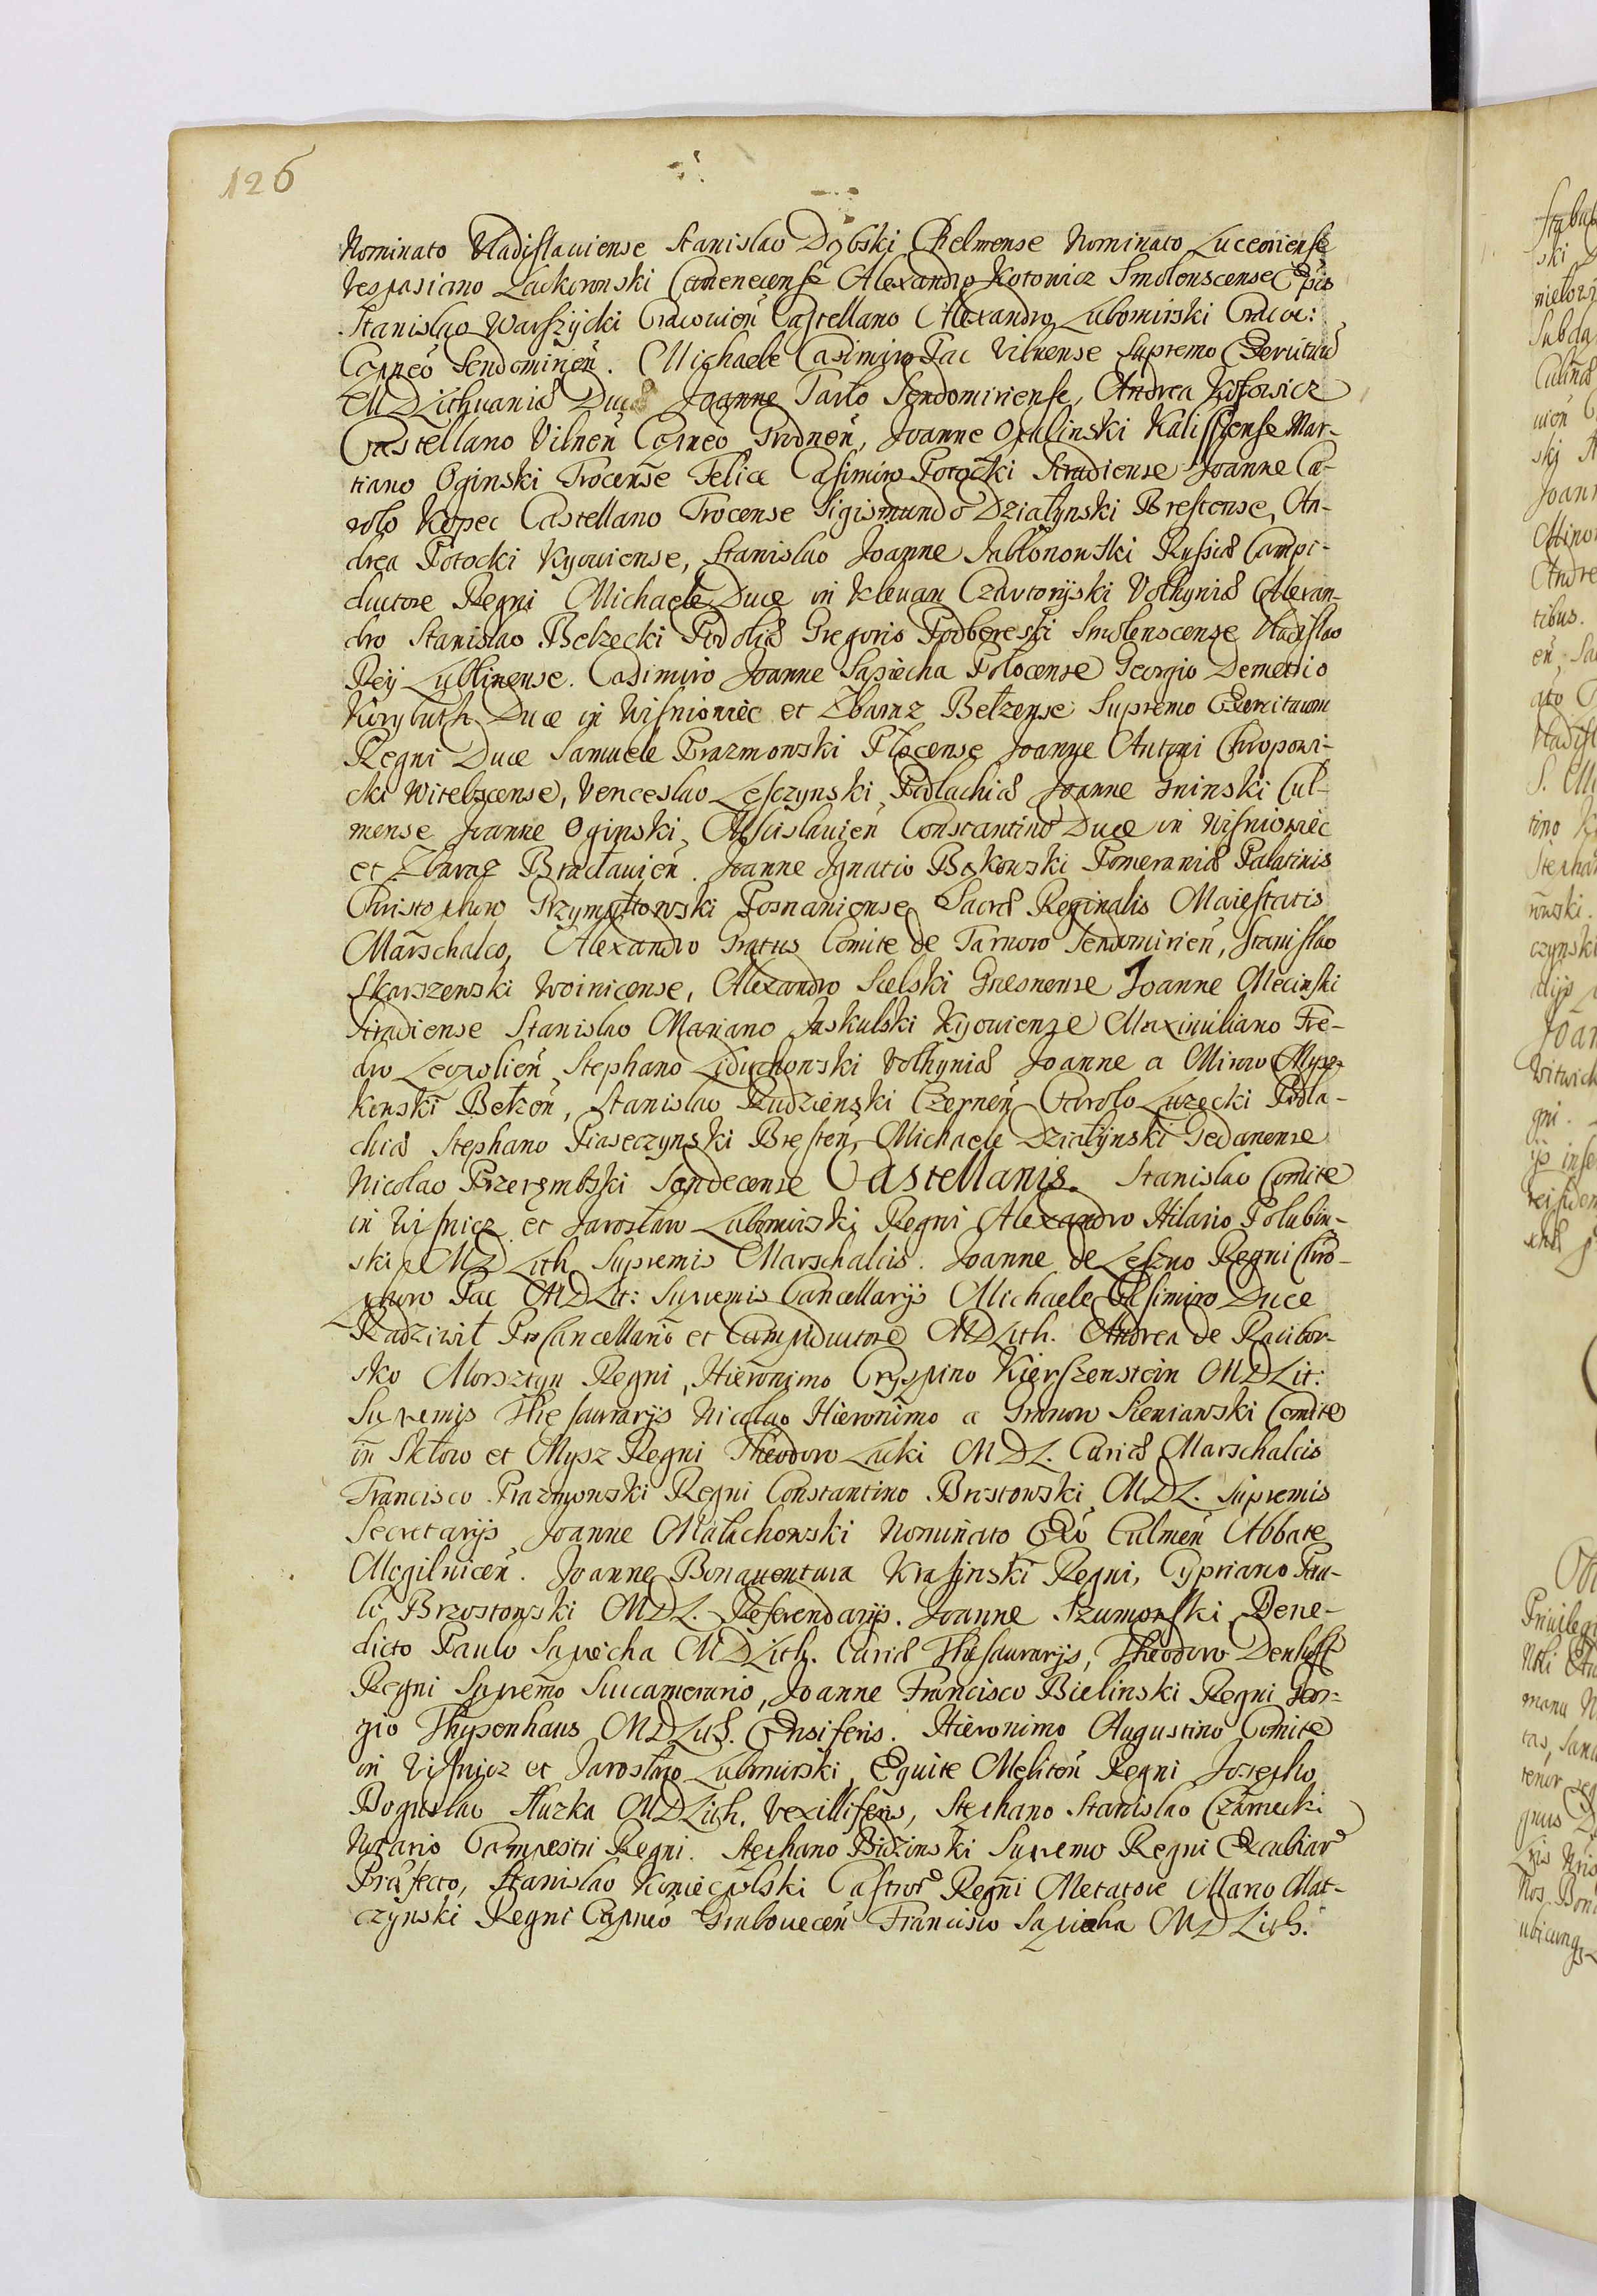 126
Nominato Vladislauiense Stanislao Dąbski Chelmense Nominato Luceoriense
Vespasiano Lanckoronski Camenecense Alexandro Kotowicz Smolenscense Epis
Stanislao Warszÿcki Cracouien̄ Castellano Alexandro Lubomirski Cracou:
Capneo Sendomirien̄. Michaele Casimiro Pac Vilnense Supremo Exercituū
MD Lithuaniæ Duce Joanne Tarło Sendomiriense, Andrea Kossowicz
Castellano Vilnen̄ Capneo Grodnen̄, Joanne Opalinski Kalisziense Mar-
tiano Oginski Trocense Felice Casimiro Potocki Siradiense Joanne Ca-
rolo Kopec Castellano Trocense Sigismundo Działynski Brestense, An-
drea Potocki Kyouiense, Stanislao Joanne Jabłonowski Russiæ Campi-
ductore Regni Michaele Duce in Klevan Czartorÿski Volhyniæ Alexan-
dro Stanislao Bełzecki Podoliæ Gregorio Podbereski Smolenscense Vladislao
Reÿ Lublinense. Casimiro Joanne Sapiecha Polocense Georgio Demetrio
Korybuth Duce in Wisniowiec et Zbaraz Bełzense Supremo Exercituum
Regni Duce Samuele Prazmowski Plocense Joanne Antoni Chrapowi-
cki Witebscense, Venceslao Lesczynski Podlachiæ Joanne Gninski Cul-
mense Joanne Oginski, Mscislauien̄ Constantino Duce in Wisniowiec
et Zbaraz Bracłauien̄. Joanne Ignatio Bąkowski Pomeraniæ Palatinis
Christophoro Grzymułtowski Posnaniense Sacræ Reginalis Maiestatis
Marschalco, Alexandro Gratus Comite de Tarnow Sendomirien̄, Stanislao
Skarszewski Woinicense, Alexandro Sielski Gnesnense Joanne Mecinski
Siradiense Stanislao Mariano Jaskulski Kyouiense Maximiliano Fre-
dro Leopolien̄ Stephano Leduchowski Volhyniæ Joanne a Mirow Mysz-
kowski Bełzen̄, Stanislao Rudzienski Czernen̄ Carolo Luzecki Podla-
chiæ Stephano Piaseczynski Bresten̄, Michaele Działÿnski Gedanense
Nicolao Przerembski Sandecense Castellanis. Stanislao Comite
in Wisnicz et Jarosław Lubomirski Regni Alexandro Hilario Polubin-
ski MD Lith Supremis Marschalcis. Joanne de Leszno Regni Chro-
phoro Pac MD Lit: Supremis Cancellarÿs Michaele Casimiro Duce
Radziwił ProCancellario et Campiductore MD Lith. Andrea de Racibor-
sko Morsztyn Regni, Hieronimo Cryspino Kierszenstein MD Lit:
Supremis Thesaurarÿs Nicolao Hieronimo a Granow Sieniawski Comite
in Skłow et Mysz Regni Theodoro Lacki MDL. Curiæ Marschalcis
Francisco Prazmowski Regni Constantino Brzstowski MDL. Supremis
Secretarÿs Joanne Małachowski Nominato Epo Culmen̄ Abbate
Mogilnicen̄. Joanne Bonauentura Krasinski Regni, Cypriano Pau-
li Brzostowski MDL. Referendarÿs. Joanne Szumowski Bene-
dicto Paulo Sapiecha MD Lith. Curiæ Thesaurarÿs, Theodoro Denhoff
Regni Supremo Succamerario, Joanne Francisco Bielinski Regni Geor-
gio Thyzenhaus MD Lith. Ensiferis. Hieronimo Augustino Comite
in Wisnicz et Jarosław Lubomirski, Equite Meliten̄ Regni Josepho
Boguslao Słuzka MD Lith. Vexilliferis, Stephano Stanislao Czarnecki
Notario Campestri Regni. Stephano Bidzinski Supremo Regni Excubiar
Præfecto, Stanislao Koniecpolski Castror Regni Metatore Marco Mat-
czynski Regni Capneo Grabouecen̄ Francisco Sapieha MD Lith.